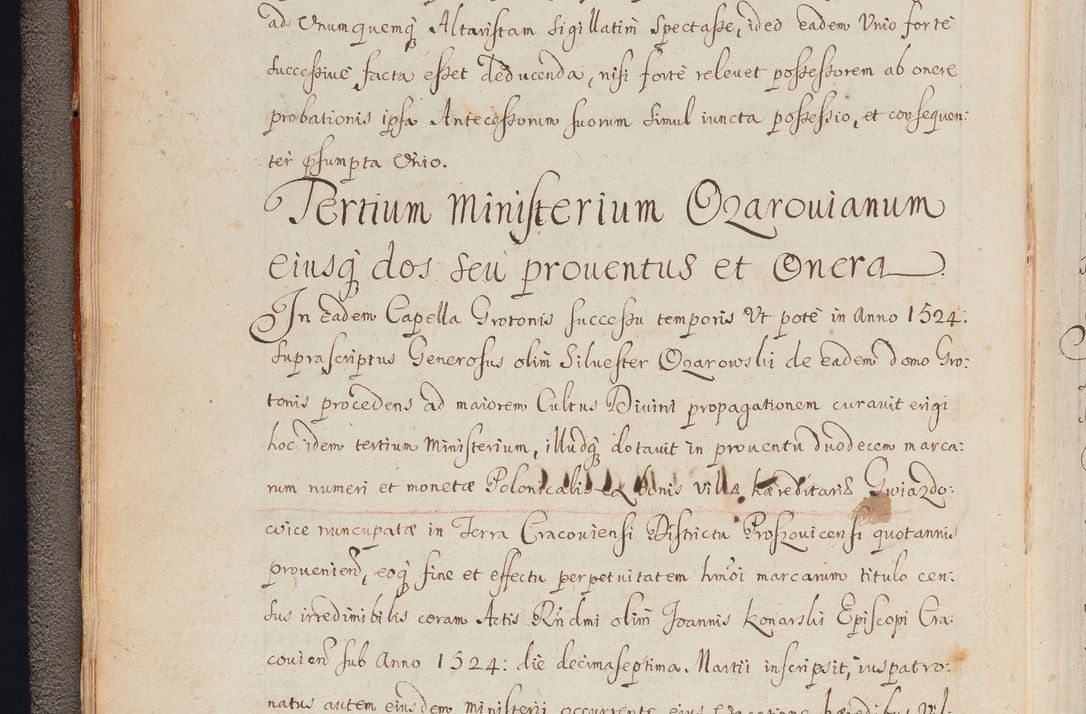 ad Unumquemq; Altaristam sigillatim spectasse, ideo eadem Unio forte
successive facta esset deducenda, nisi forte relevet possessorem ab onere
probationis ipsa Antecessorum suorum simul iuncta possessio, et consequen:
ter psumpta Unio.
Tertium Ministerium Ozarouianum
eiusq; dos seu prouentus et Onera
In eadem Capella Grotonis successu temporis Ut poté in Anno 1524:
suprascriptus Generosus olim Siluester Ozarowski de eadem domo Gro:
tonis procedens ad maiorem Cultus Divini propagationem curavit erigi
hoc idem tertium Ministerium, illudq; dotauit in prouentu duodecem marca:
rum numeri et monetæ Polonicalis ex bonis villæ hæreditariæ Gwiazdo:
wice nuncupatæ in Terra Cracoviensi Districtu Proszovicensi quotannis
provenien, eoq; fine et effectu perpetuitatem hmoi marcarum titulo cen:
sus irredimibilis coram Actis Rndmi olim Joannis Konarski Episcopi Cra:
covien sub Anno 1524: die decimaseptima Martii inscripsit, iuspatro:
natus autem eiusdem ministerii occurrente eius vacatione hæredibus Vil: